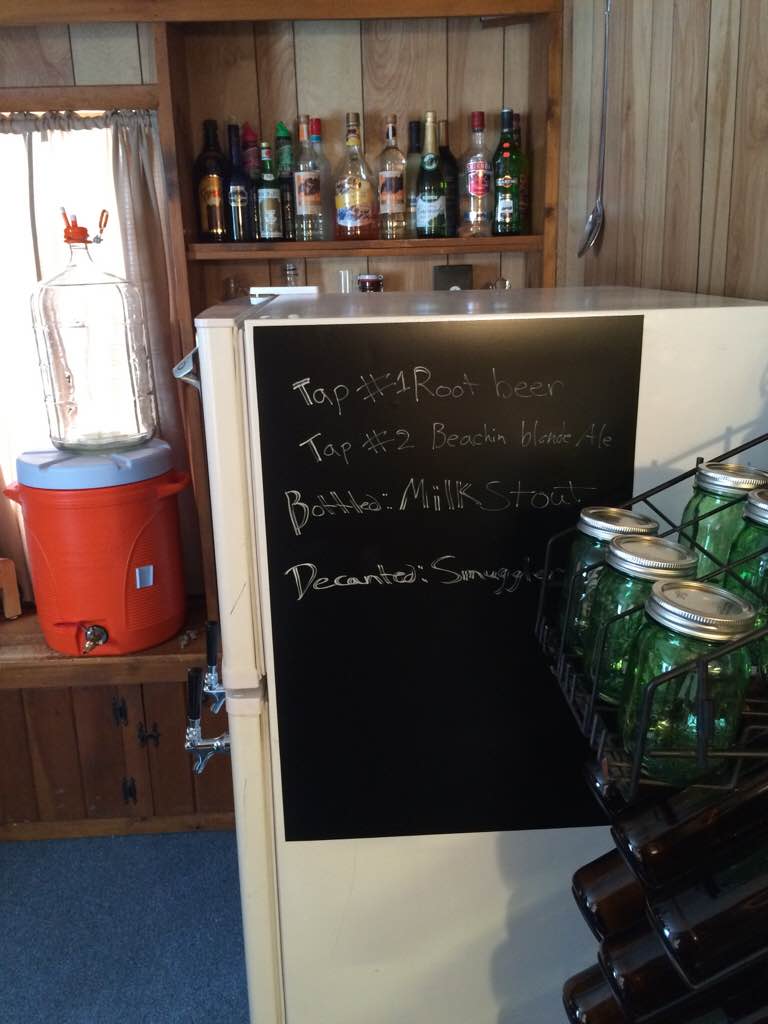 Tap #1 Root beer
Tap #2 Beachin blonde Ale
Bottled: Milk Stout
Decanted: Smuggler